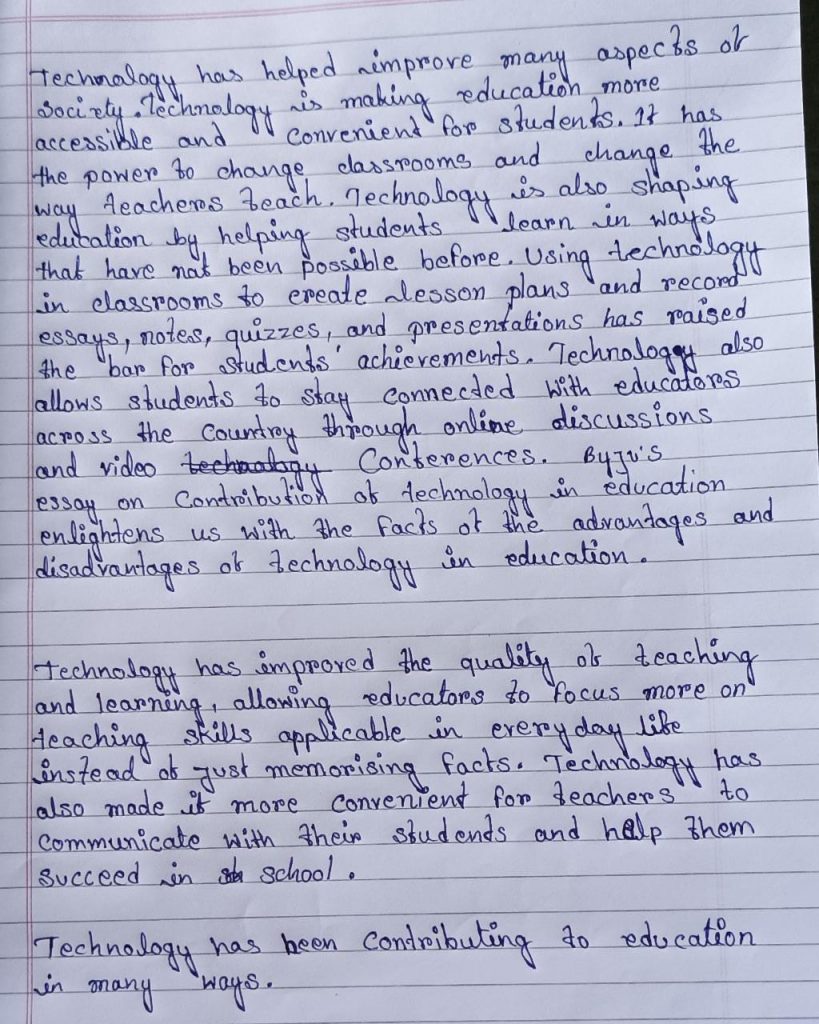 Technology has helped improve many aspects of
society. Technology is making education more
accessible and convenient for students. It has
the power to change classrooms and change the
way teachers teach. Technology is also shaping
education by helping students learn in ways
that have not been possible before. Using technology
in classrooms to create lesson plans and record
essays, notes, quizzes, and presentations has raised
the bar for students' achievements. Technology also
allows students to stay connected with educators
across the country through online discussions
and video technology Conferences. Byju's
essay on Contribution of technology in education
enlightens us with the facts of the advantages and
disadvantages of technology in education.
Technology has improved the quality of teaching
and learning, allowing educators to focus more on
teaching skills applicable in everyday life
instead of just memorising facts. Technology has
also made it more convenient for teachers to
communicate with their students and help them
succeed in school.
Technology has been contributing to education
in many ways.